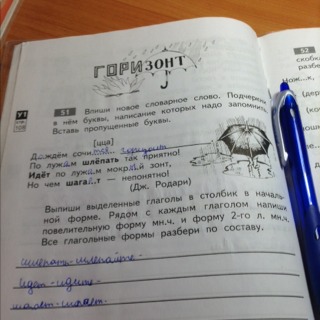 ГОРИЗОНТ
У1
с.
108
51
Впиши новое словарное слово. Подчеркни
в нём буквы, написание которых надо запомнить.
Вставь пропущенные буквы.
[цца]
Дождём сочится горизонт
По лужам шлёпать так приятно!
Идёт по лужам мокрый зонт,
Но чем шагает — непонятно!
(Дж. Родари)
Выпиши выделенные глаголы в столбик в началь-
ной форме. Рядом с каждым глаголом напиши
повелительную форму мн.ч. и форму 2-го л. мн.ч.
Все глагольные формы разбери по составу.
шлепать-шлепайте-
идет-идите-
шагает-
52
скобк
разбе
Нож...к,
(дер
(ко